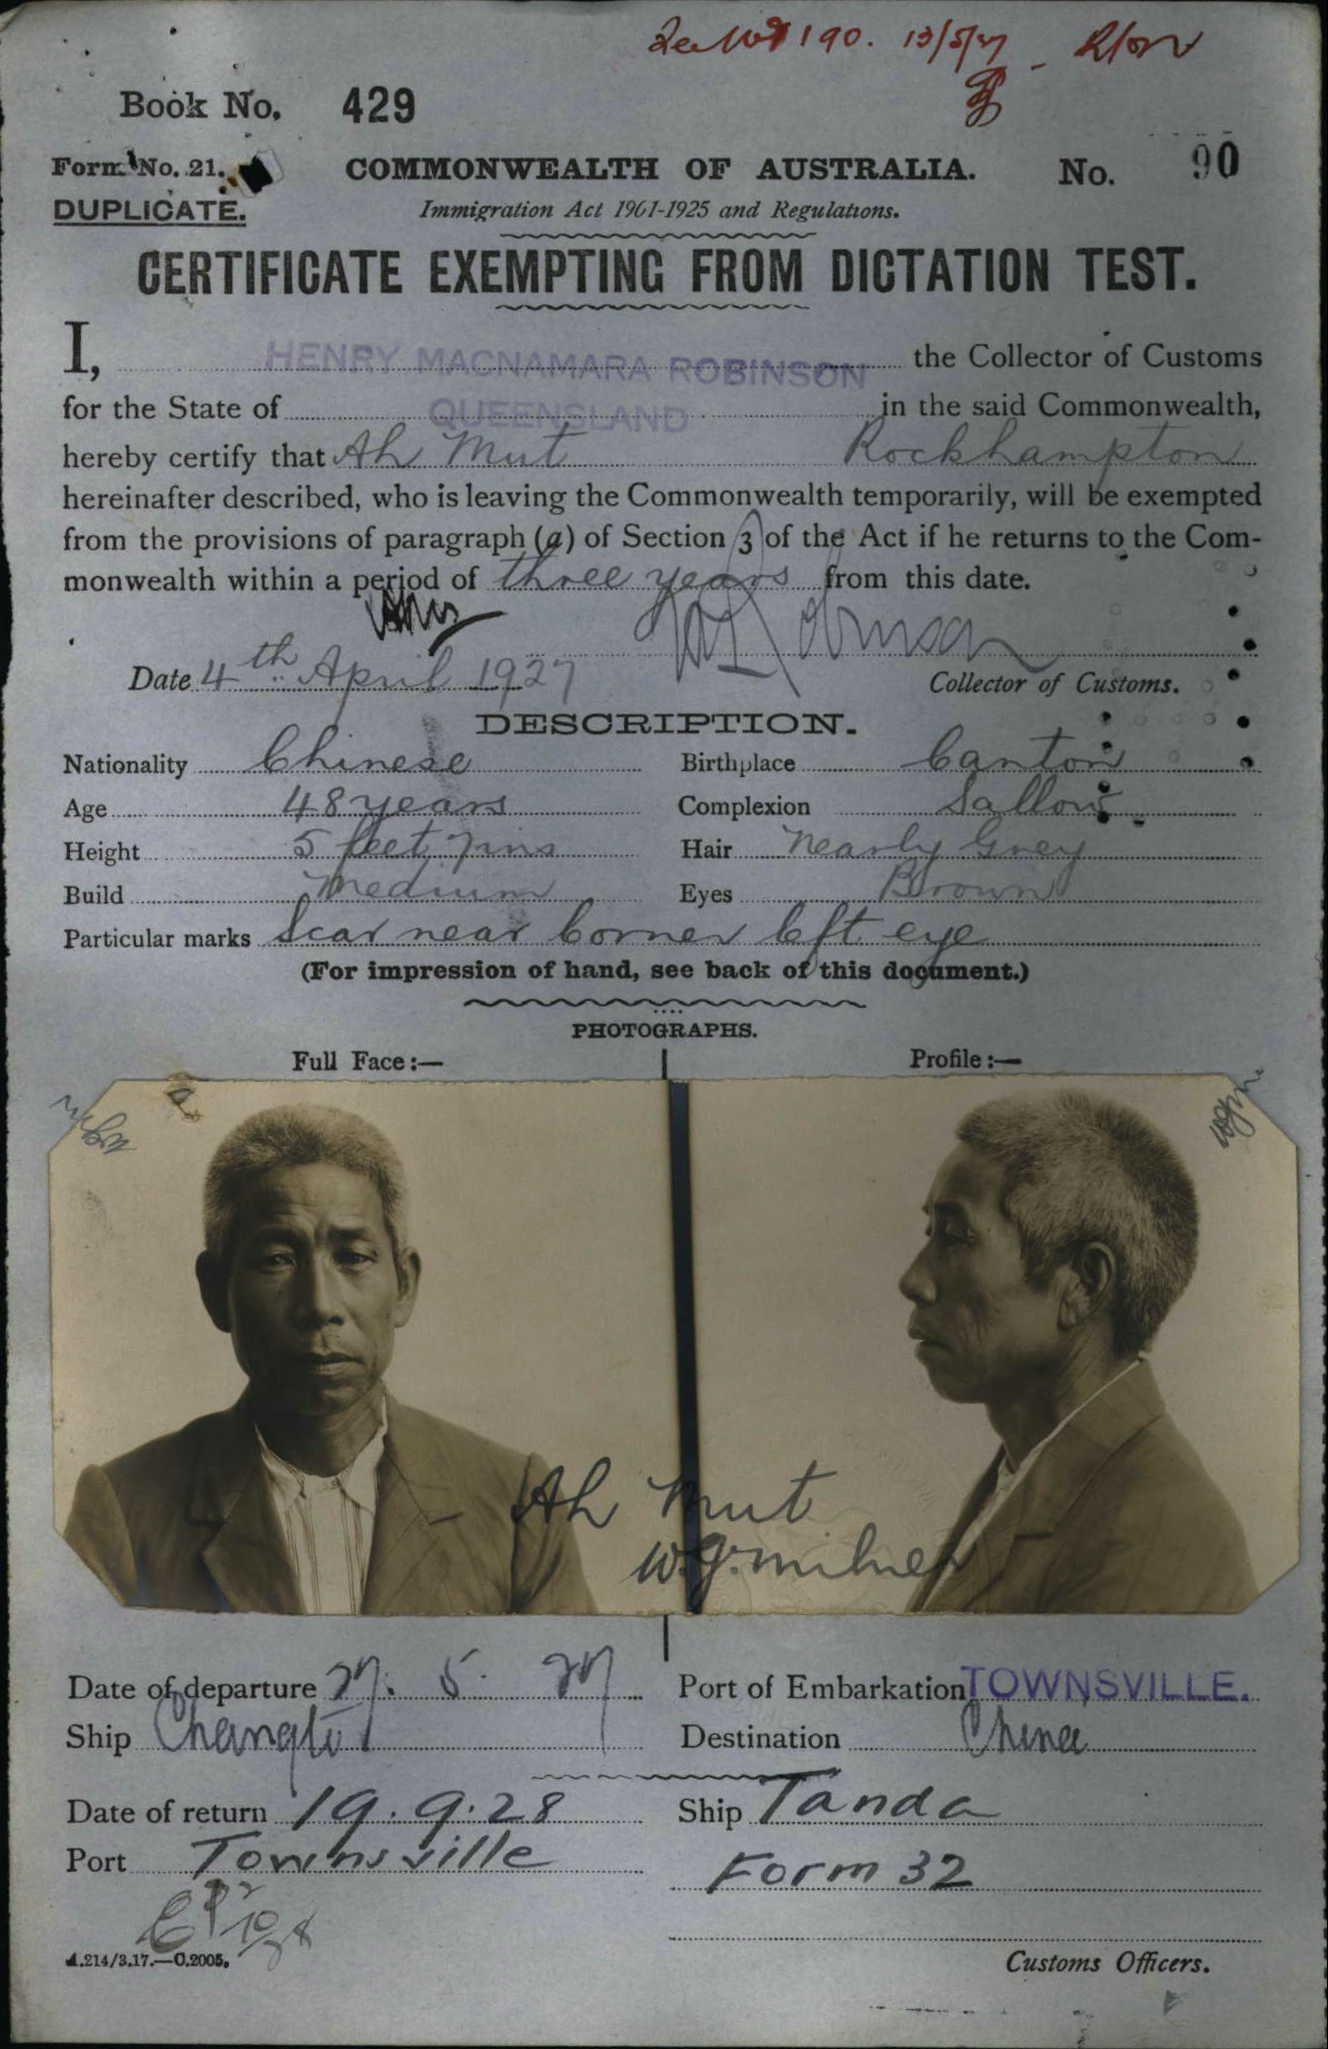 190. 13/5/27
Book No. 429
Form No. 21. COMMONWEALTH OF AUSTRALIA. No. 90
DUPLICATE. Immigration Act 1901-1925 and Regulations.
CERTIFICATE EXEMPTING FROM DICTATION TEST.
I, HENRY MACNAMARA ROBINSON the Collector of Customs
for the State of QUEENSLAND in the said Commonwealth,
hereby certify that Ah Mut Rockhampton
hereinafter described, who is leaving the Commonwealth temporarily, will be exempted
from the provisions of paragraph (a) of Section 3 of the Act if he returns to the Com-
monwealth within a period of three years from this date.
Robinson
Date 4th April 1927 Collector of Customs.
DESCRIPTION.
Nationality Chinese Birthplace Canton
Age 48 years Complexion Sallow
Height 5 feet 7ins Hair Nearly Grey
Build Medium Eyes Brown
Particular marks Scar near Corner left eye
(For impression of hand, see back of this document.)
PHOTOGRAPHS.
Full Face:— Profile:—
Ah Mut
W.G. Milner
Date of departure 27. 5. 27 Port of Embarkation TOWNSVILLE.
Ship Changte Destination China
Date of return 19.9.28 Ship Tanda
Port Townsville Form 32
A.214/3.17.—C.2005. Customs Officers.